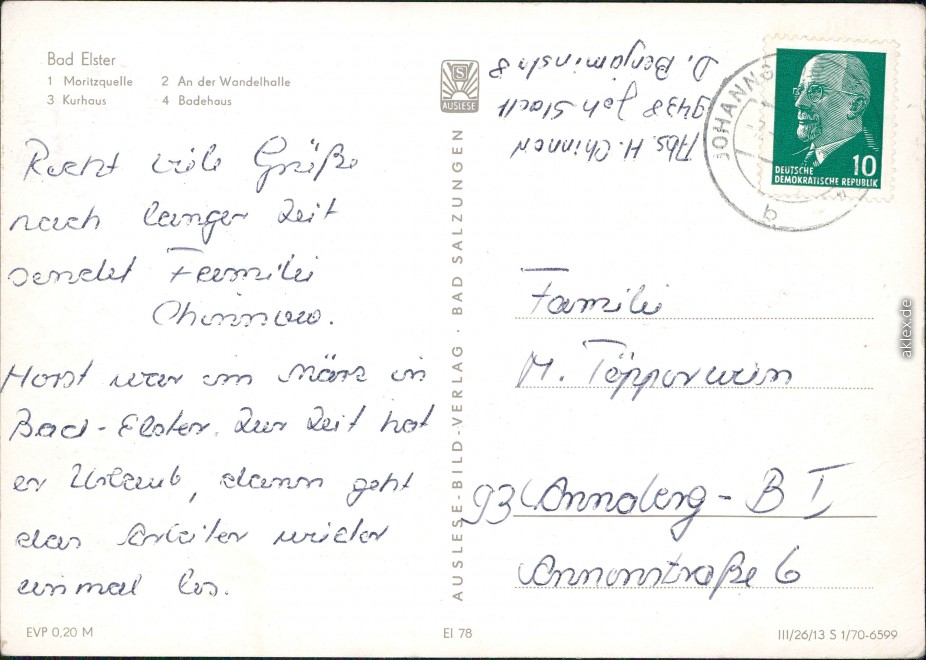 Bad Elster
1 Moritzquelle 2 An der Wandelhalle
3 Kurhaus 4 Badehaus
Recht viele Grüße
nach langer Zeit
sendet Familie
Chinnow.
Horst war im März in
Bad-Elster. Zur Zeit hat
er Urlaub, dann geht
das Arbeiten wieder
einmal los.
EVP 0,20 M
S
AUSLESE
AUSLESE-BILD-VERLAG · BAD SALZUNGEN
EI 78
Abs. H. Chinnow
9438 Joh Stadt
D. Benjaminstr 8
JOHANNG
b
DEUTSCHE
DEMOKRATISCHE REPUBLIK
10
Familie
M. Töpperwein
93 Annaberg - B I
Annenstraße 6
III/26/13 S 1/70-6599
aklex.de